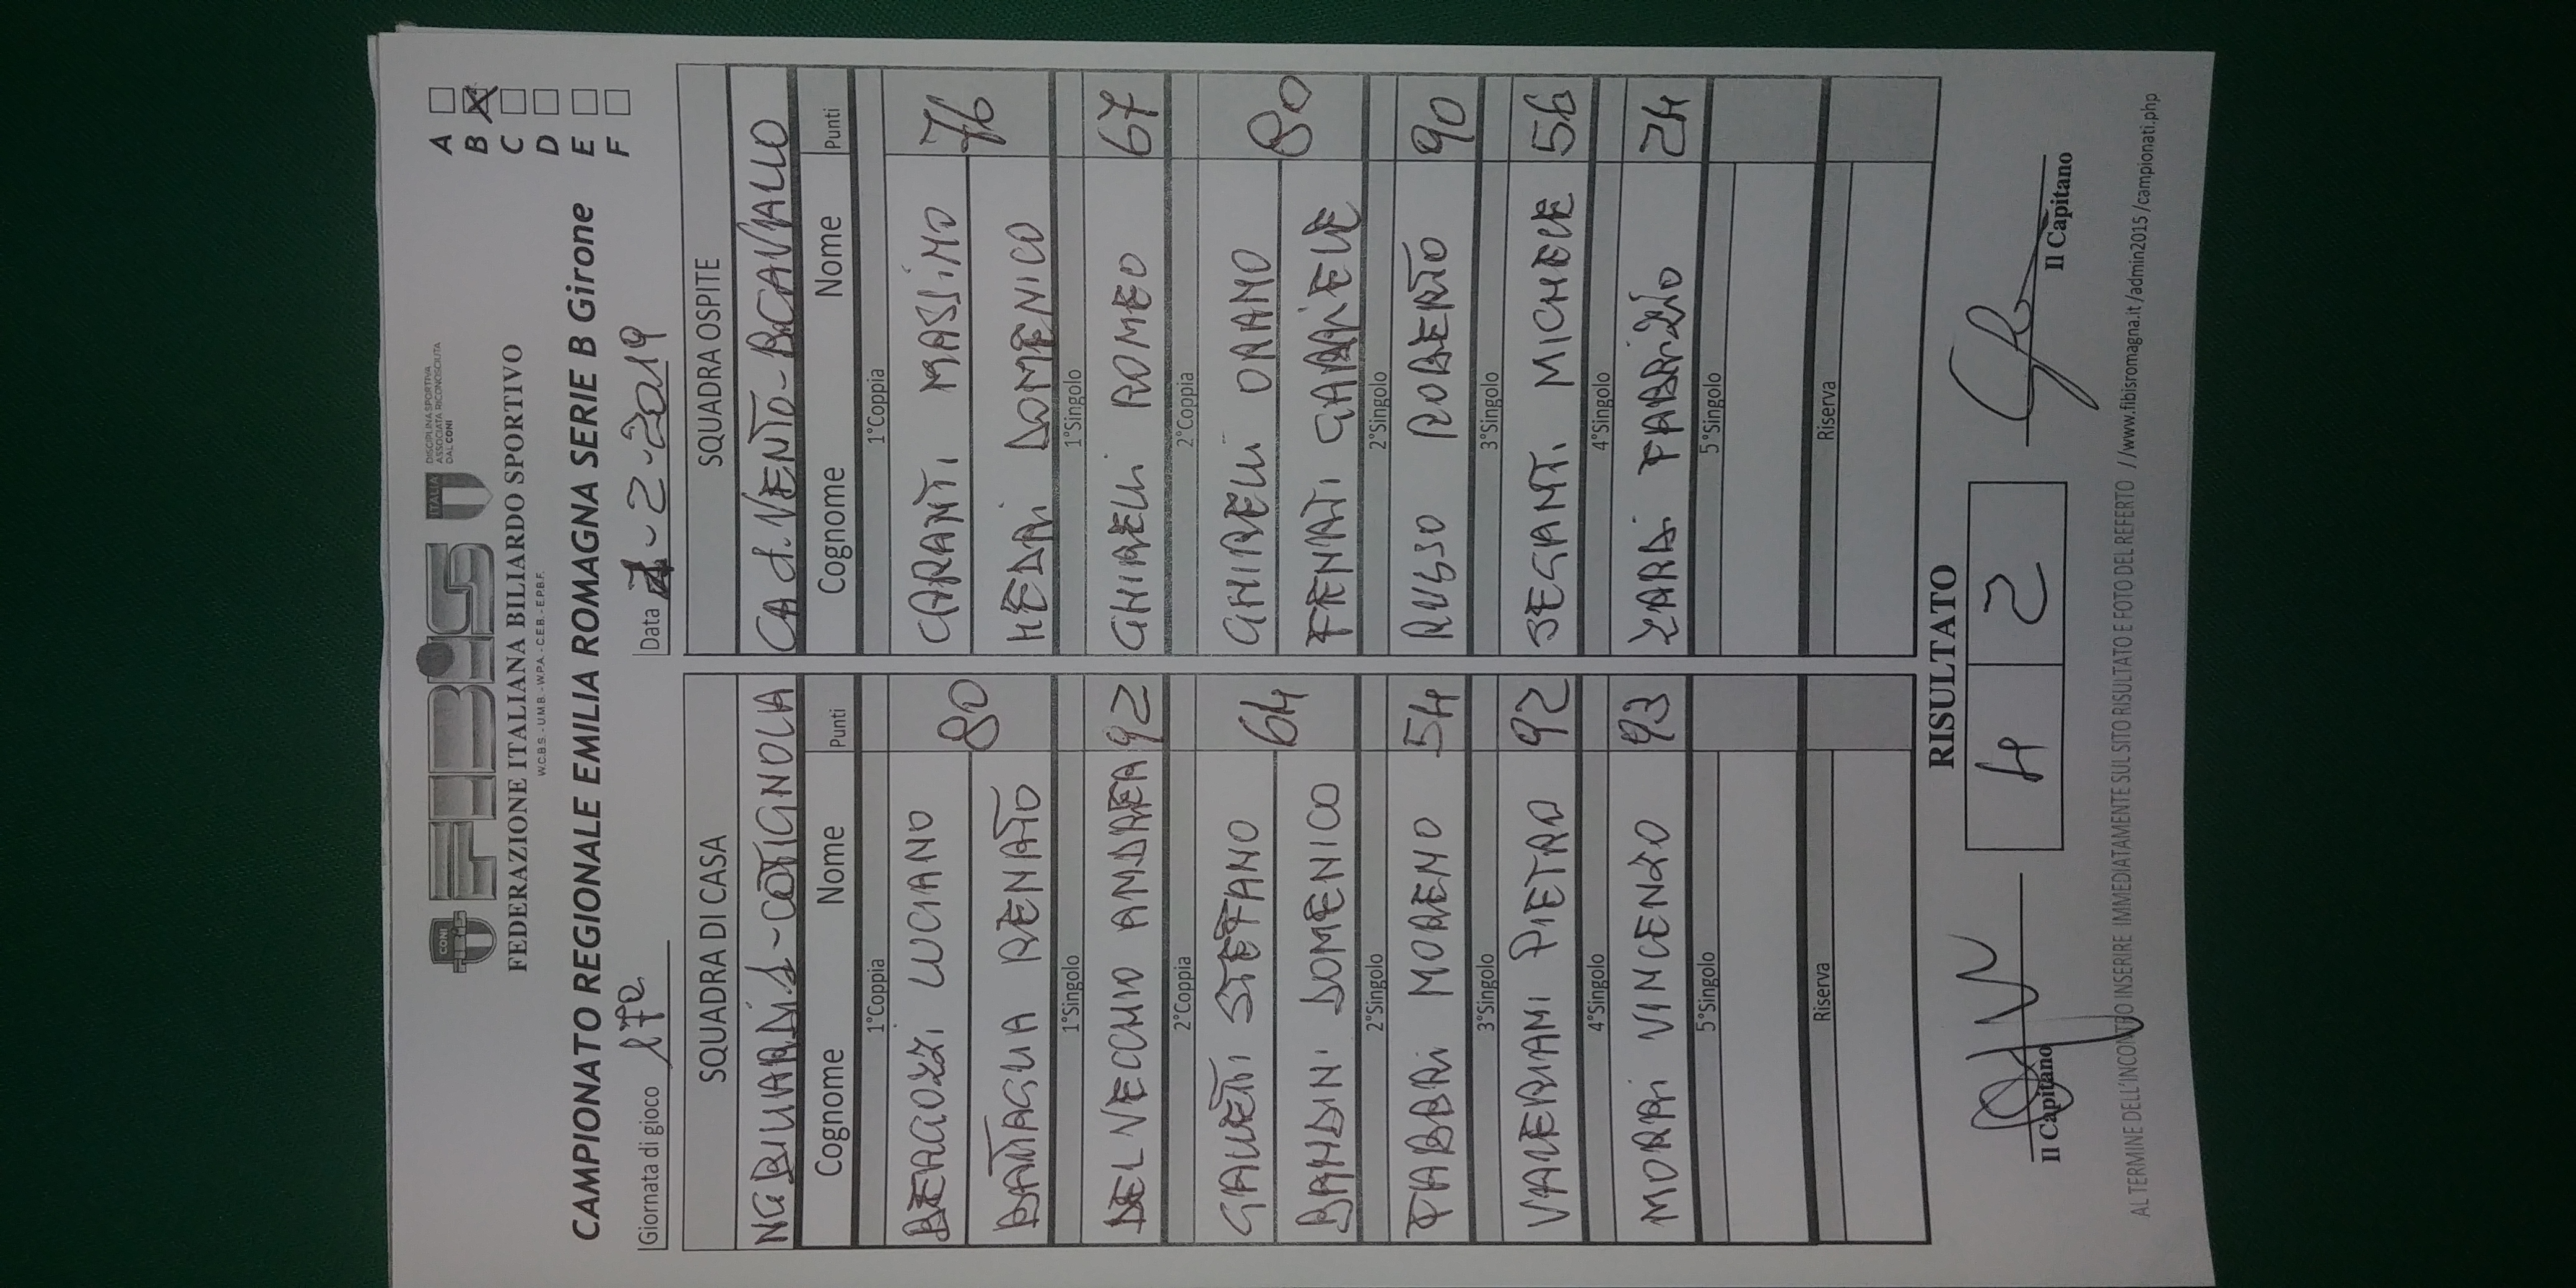 CONI
FIBiS
ITALIA
DISCIPLINA SPORTIVA
ASSOCIATA RICONOSCIUTA
DAL CONI
FEDERAZIONE ITALIANA BILIARDO SPORTIVO
W.C.B.S. - U.M.B. - W.P.A. - C.E.B. - E.P.B.F.
CAMPIONATO REGIONALE EMILIA ROMAGNA SERIE B Girone
A
B X
C
D
E
F
Giornata di gioco
Data -2-2019
SQUADRA DI CASA
NG BILIARDIS-COTIGNOLA
Cognome Nome Punti
1°Coppia
BERGOZZI LUCIANO
80
BATTAGLIA RENATO
1°Singolo
DEL VECCHIO ANDREA 92
2°Coppia
GALLETTI STEFANO
64
BANDINI DOMENICO
2°Singolo
FABBRI MORENO 54
3°Singolo
VALERIANI PIETRO 92
4°Singolo
MORRI VINCENZO 93
5°Singolo
Riserva
SQUADRA OSPITE
CA d. VENTO-BCAVALLO
Cognome Nome Punti
1°Coppia
CARANTI MASSIMO
76
DOMENICO
1°Singolo
GHIRELLI ROMEO 67
2°Coppia
GHIRELLI ORANO
80
FERRATI GABRIELE
2°Singolo
RUSSO ROBERTO 90
3°Singolo
SEGANTI MICHELE 56
4°Singolo
ZARDI FABRIZIO 24
5°Singolo
Riserva
RISULTATO
4 2
Il Capitano
Il Capitano
AL TERMINE DELL'INCONTRO INSERIRE IMMEDIATAMENTE SUL SITO RISULTATO E FOTO DEL REFERTO //www.fibisromagna.it/admin2015/campionati.php